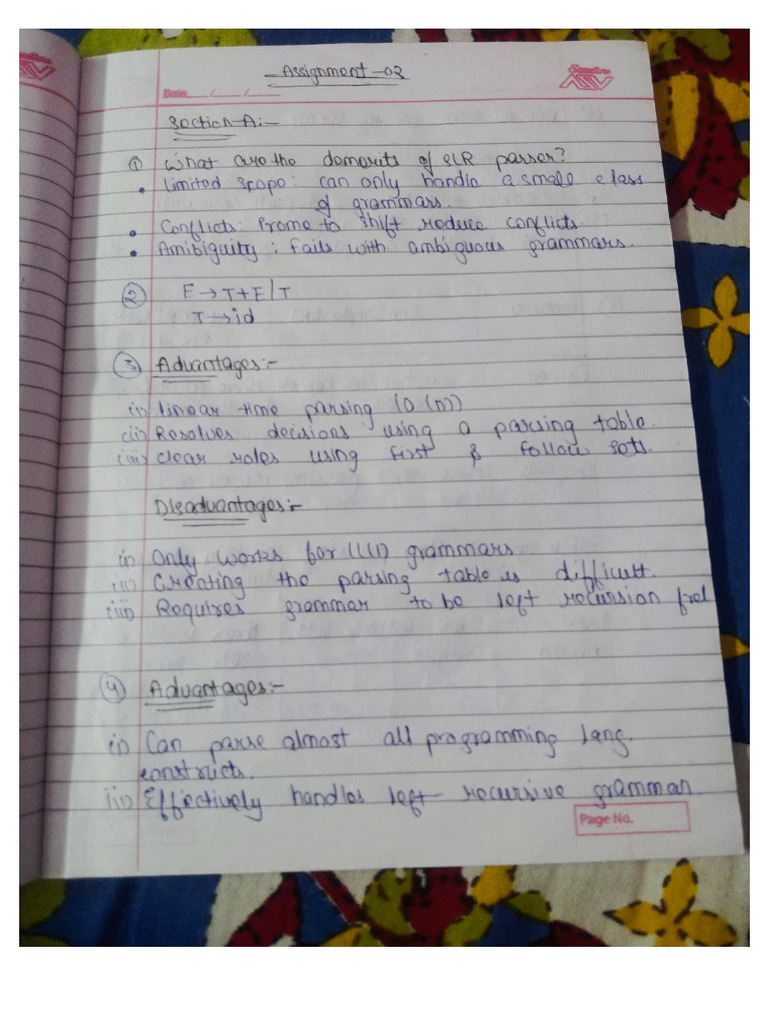 Assignment-02
Date / /
Section A:-
① What are the demerits of SLR parser?
• Limited scope: can only handle a small class
of grammars.
• Conflicts: Prone to shift reduce conflicts.
• Amibiguity: Fails with ambiguous grammars.
② E → T+E/T
T → id
③ Advantages:-
(i) linear time parsing (O(n))
(ii) Resolves decisions using a parsing table.
(iii) clear roles using first & follow sets.
Disadvantages:-
(i) Only works for LL(1) grammars
(ii) Creating the parsing table is difficult.
(iii) Requires grammar to be left recursion free
④ Advantages:-
(i) Can parse almost all programming lang.
constructs.
(ii) Effectively handles left recursive grammar
Page No.